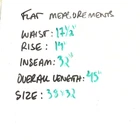 FLAT MEASUREMENTS
WAIST: 17 1/2"
RISE: 14"
INSEAM: 32"
OVERALL LENGTH: 43"
SIZE: 33x32